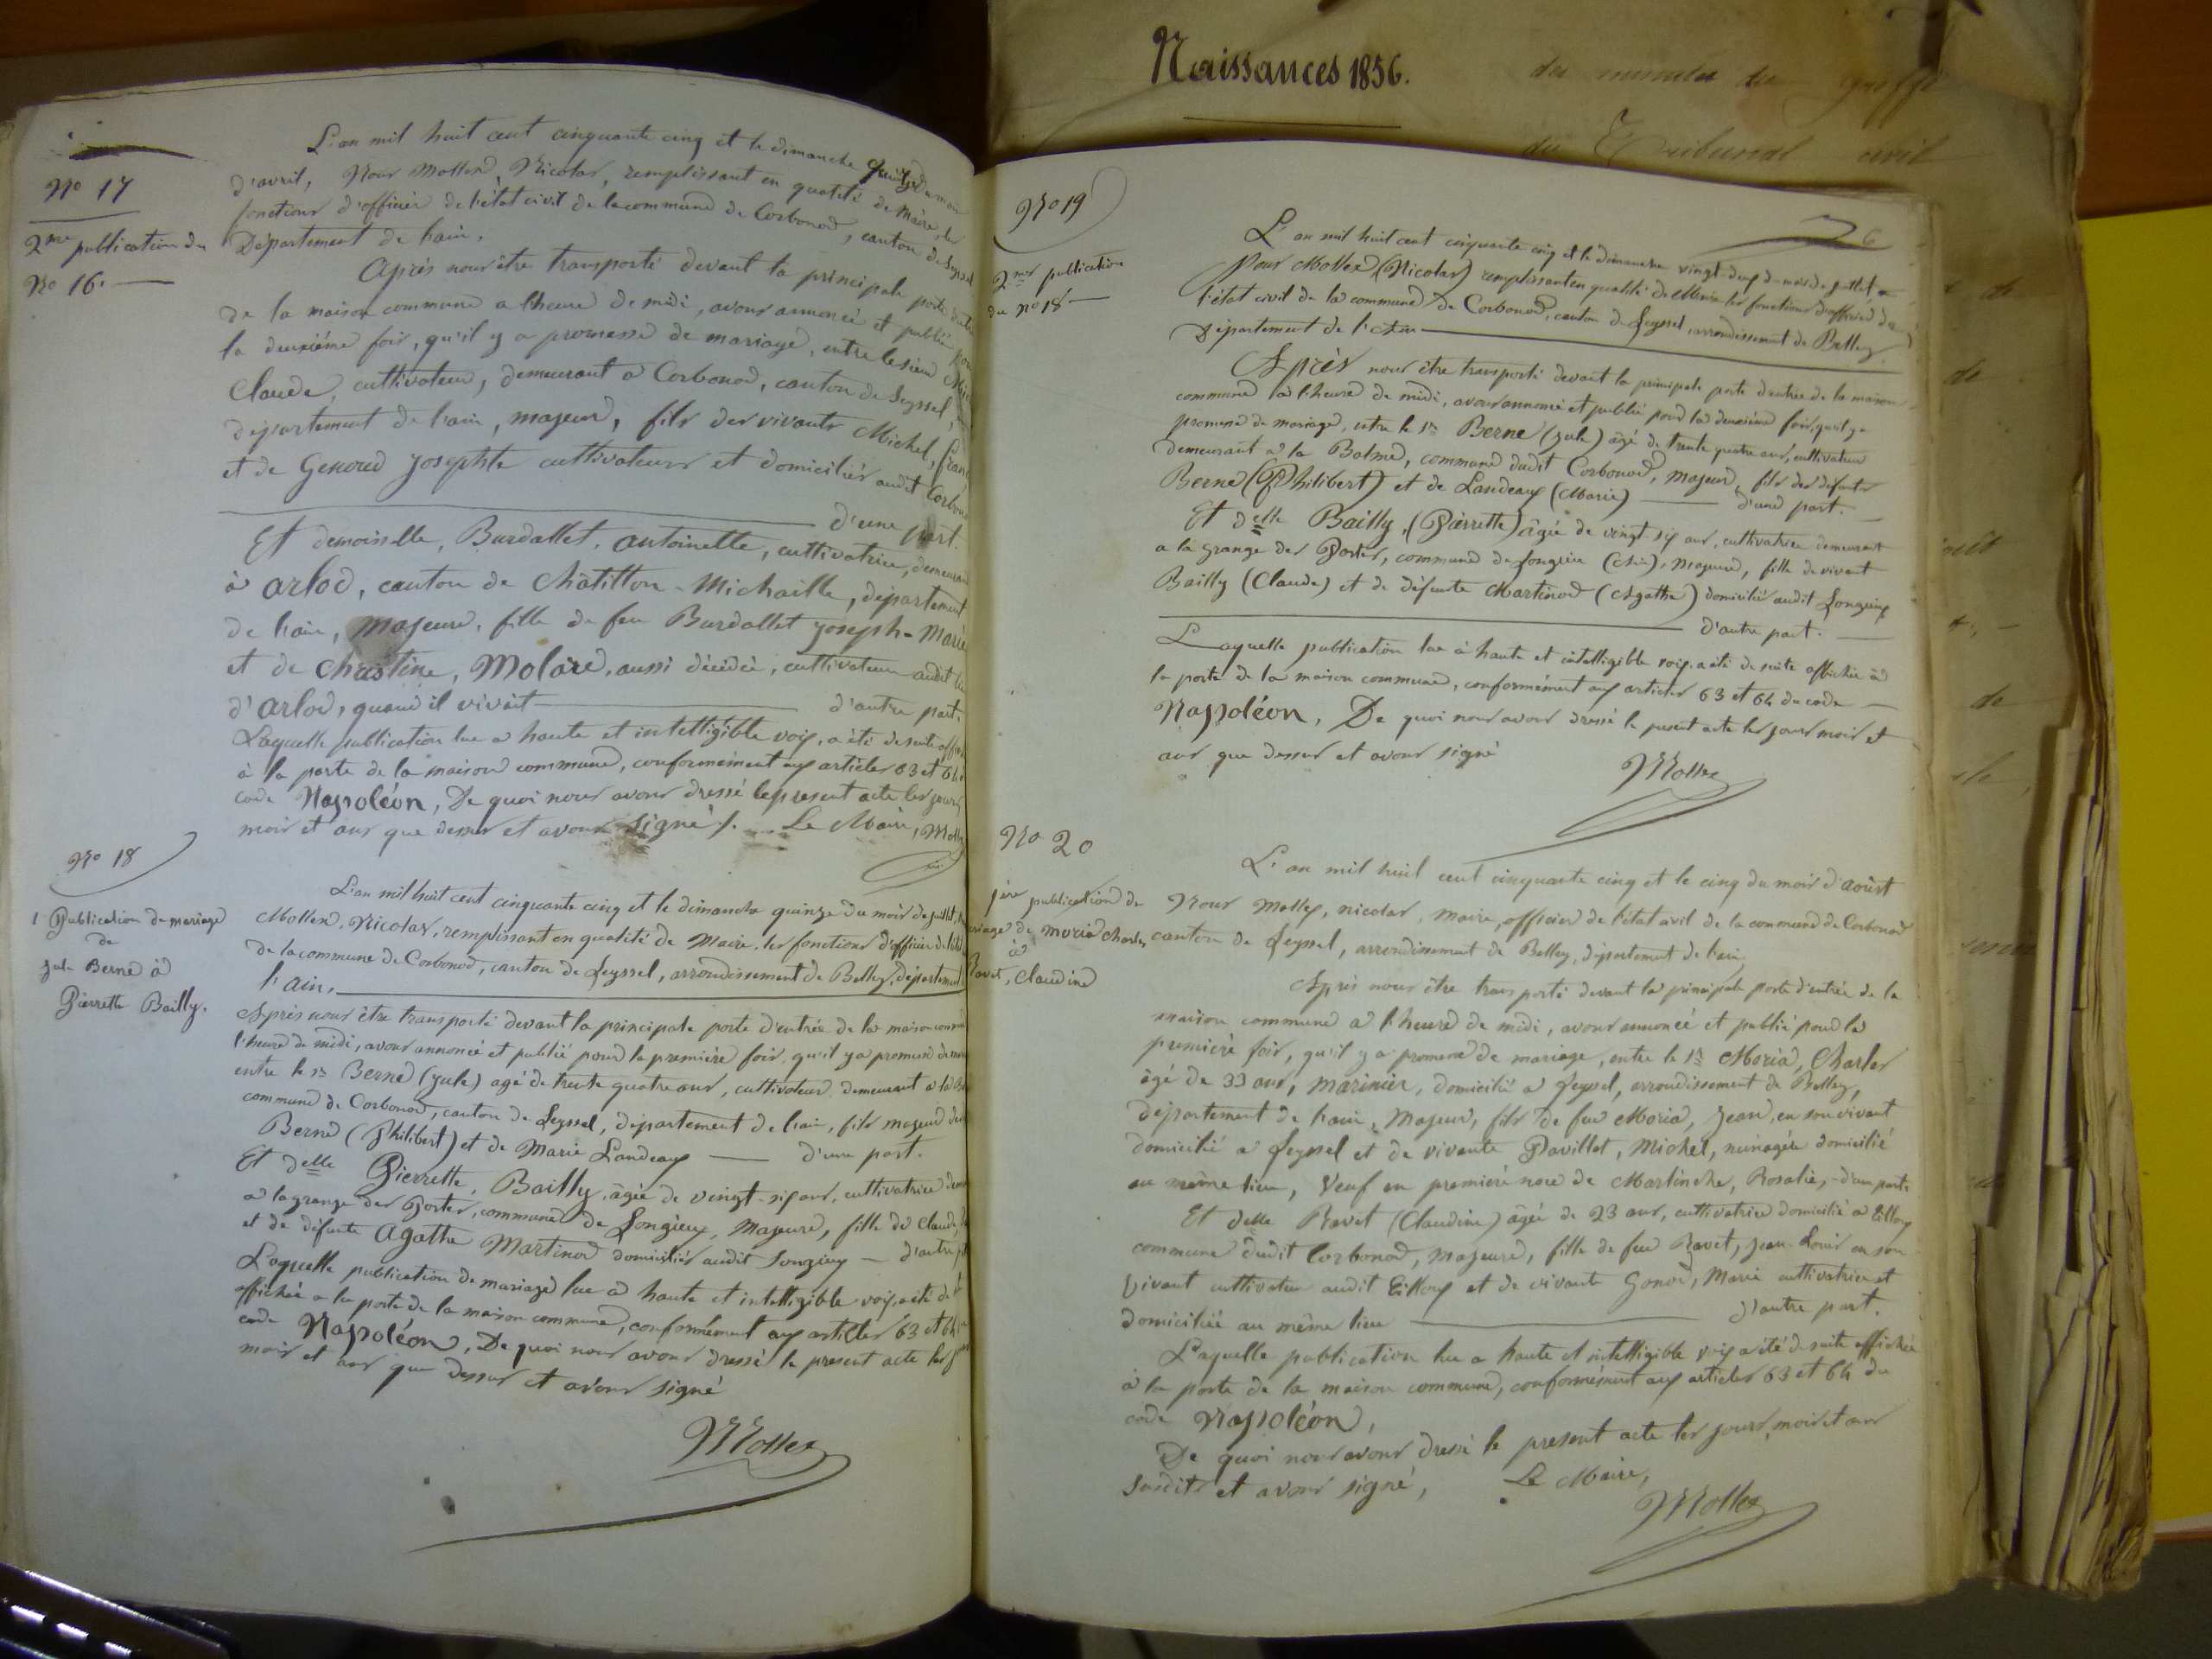 Naissances 1856.
des minutes du greffe
du Tribunal civil
No 17
2me publication du
No 16.
L'an mil huit cent cinquante cinq et le dimanche
d'avril, Nous Mollex, Nicolas, remplissant en qualité de Maire, les
fonctions d'officier de l'état civil de la commune de Corbonod, canton de Seyssel
Département de l'ain.
Après nous être transporté devant la principale porte
de la maison commune a l'heure de midi, avons annoncé et publié pour
la deuxième fois, qu'il y a promesse de mariage, entre le sieur
Claude, cultivateur, demeurant a Corbonod, canton de Seyssel,
département de l'ain, majeur, fils des vivants Michel,
et de Genoud Josephte cultivateurs et domiciliés audit
d'une part.
Et demoiselle, Burdallet, antoinette, cultivatrice,
à arlod, canton de Châtillon-Michaille, département
de l'ain, majeure, fille de feu Burdallet joseph-Marie
et de Christine, Molard, aussi décédée, cultivateur audit
d'arlod, quand il vivait d'autre part.
Laquelle publication lue a haute et intelligible voix, a été de suite
à la porte de la maison commune, conformément aux articles 63 et 64
code Napoléon, De quoi nous avons dressé le present acte les jours
mois et ans que dessus et avons signé /. Le Maire,
No 18
1 Publication de mariage
de
jule Berne à
Pierrette Bailly.
L'an mil huit cent cinquante cinq et le dimanche quinze du mois de juillet,
Mollex, Nicolas, remplissant en qualité de Maire, les fonctions d'officier de
de la commune de Corbonod, canton de Seyssel, arrondissement de Belley, département
l'ain,
Après nous être transporté devant la principale porte d'entrée de la maison
l'heure de midi, avons annoncé et publié pour la première fois, qu'il y a promesse de
entre le sr Berne (jule) agé de trente quatre ans, cultivateur, demeurant a la
commune de Corbonod, canton de Seyssel, département de l'ain, fils majeur
Berne (Philibert) et de Marie Landeaux — d'une part.
Et delle Pierrette, Bailly, âgée de vingt-six ans, cultivatrice
a la grange des Portes, commune de Songieux, Majeure, fille de Claude,
et de défunte Agathe Martinod domiciliés audit Songieux — d'autre
Laquelle publication de mariage lue a haute et intelligible voix, a été de
affichée a la porte de la maison commune, conformément aux articles 63 et 64
code Napoléon, De quoi nous avons dressé le present acte les
mois et ans que dessus et avons signé
NMollex
No 19
2me publication
du no 18
6
L'an mil huit cent cinquante cinq et le dimanche vingt-deux du mois de juillet,
Nous Mollex (Nicolas) remplissant en qualité de Maire les fonctions d'officier de
l'état civil de la commune de Corbonod, canton de Seyssel, arrondissement de Belley,
Département de l'Ain
Après nous être transporté devant la principale porte d'entrée de la maison
commune à l'heure de midi, avons annoncé et publié pour la deuxième fois, qu'il y a
promesse de mariage, entre le sr Berne (jule) âgé de trente quatre ans, cultivateur
demeurant a la Balme, commune dudit Corbonod, majeur, fils des défunts
Berne (Philibert) et de Landeaux (Marie) — d'une part.
Et delle Bailly, (Pierrette) âgée de vingt-six ans, cultivatrice demeurant
a la grange des Portes, commune de Songieu (Ain), majeure, fille de vivant
Bailly (Claude) et de défunte Martinod (Agathe) domicilié audit Songieux
d'autre part.
Laquelle publication lue à haute et intelligible voix, a été de suite affichée à
la porte de la maison commune, conformément aux articles 63 et 64 du code
Napoléon, De quoi nous avons dressé le present acte les jours mois et
ans que dessus et avons signé
NMollex
No 20
1ère publication de
mariage de moria Charles
à
Ravet, Claudine
L'an mil huit cent cinquante cinq et le cinq du mois d'août
Nous Mollex, nicolas, maire, officier de l'état civil de la commune de Corbonod
canton de Seyssel, arrondissement de Belley, département de l'ain,
Après nous être transporté devant la principale porte d'entrée de la
maison commune a l'heure de midi, avons annoncé et publié pour la
première fois, qu'il y a promesse de mariage, entre le sr Moria, Charles
âgé de 33 ans, marinier, domicilié a Seyssel, arrondissement de Belley,
département de l'ain, Majeur, fils de feu Moria, Jean, en son vivant
domicilié a Seyssel et de vivante Pavillet, Michel, ménagère domicilié
au même lieu, Veuf en première noce de Martinche, Rosalie, - d'une part.
Et delle Ravet (Claudine) âgée de 23 ans, cultivatrice domicilié a Eilloux
commune dudit Corbonod, majeure, fille de feu Ravet, Jean-Louis en son
vivant cultivateur audit Eilloux et de vivante Gonod, Marie cultivatrice et
domiciliée au même lieu d'autre part.
Laquelle publication lue a haute et intelligible voix a été de suite affichée
à la porte de la maison commune, conformément aux articles 63 et 64 du
code Napoléon,
De quoi nous avons dressé le present acte les jours, mois et an
susdits et avons signé, Le Maire,
NMollex